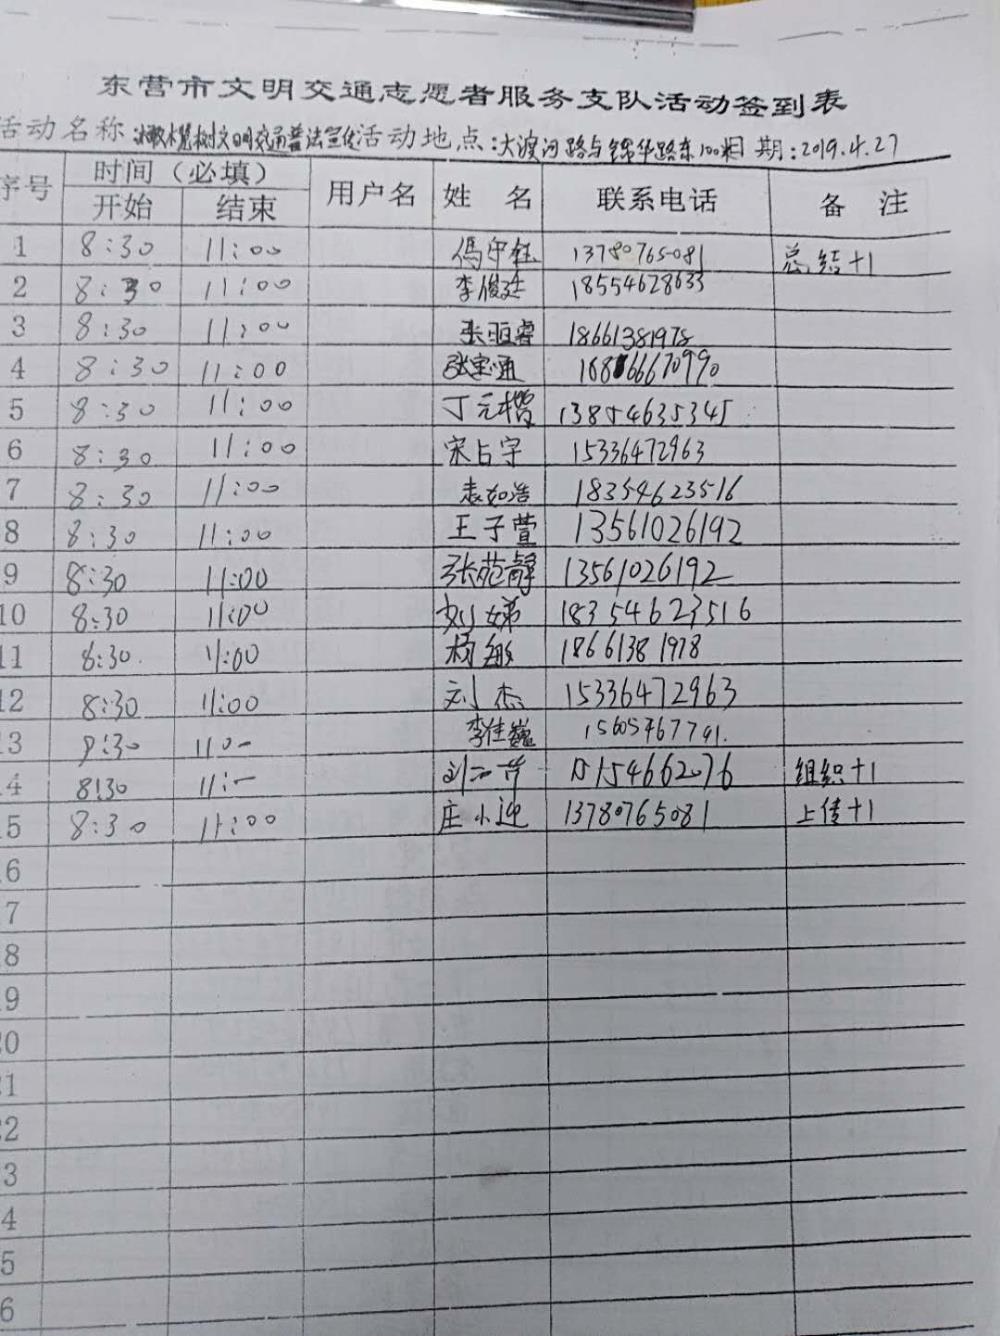 东营市文明交通志愿者服务支队活动签到表
活动名称:橄榄树文明交通普法宣传活动地点:大渡河路与锦华路东100米日期:2019.4.27
序号 时间(必填) 用户名 姓 名 联系电话 备 注
开始 结束
1 8:30 11:00 冯中钰 13780765081 总结+1
2 8:30 11:00 李俊廷 18554628633
3 8:30 11:00 张亚睿 18661381978
4 8:30 11:00 张宝通 16866670990
5 8:30 11:00 丁元樱 13854635345
6 8:30 11:00 宋占宇 15336472963
7 8:30 11:00 袁如浩 18354623516
8 8:30 11:00 王子萱 13561026192
9 8:30 11:00 张苑静 13561026192
10 8:30 11:00 刘娣 18354623516
11 8:30 11:00 杨敏 18661381978
12 8:30 11:00 刘杰 15336472963
3 8:30 11:0- 李佳巍 15605467791.
4 8:30 11:- 刘 15154662076 组织+1
5 8:30 11:00 庄小迎 13780765081 上传+1
6
7
8
9
20
1
2
3
4
5
6